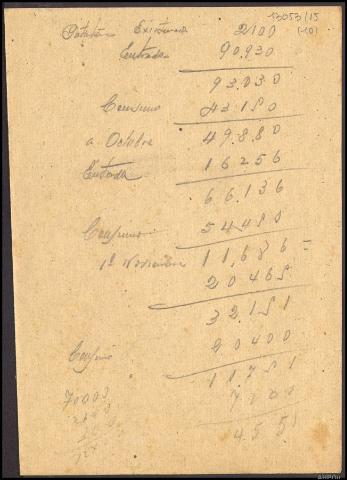 13053/15
(10)
Patata Existencia 2100
Entrada 90.930
93.030
Consumo 43150
a Octubre 49.880
Entrada 16256
66.136
Consumo 54450
1º Noviembre 11,686 =
20465
32151
Consumo 20400
11751
70000
7200
4551